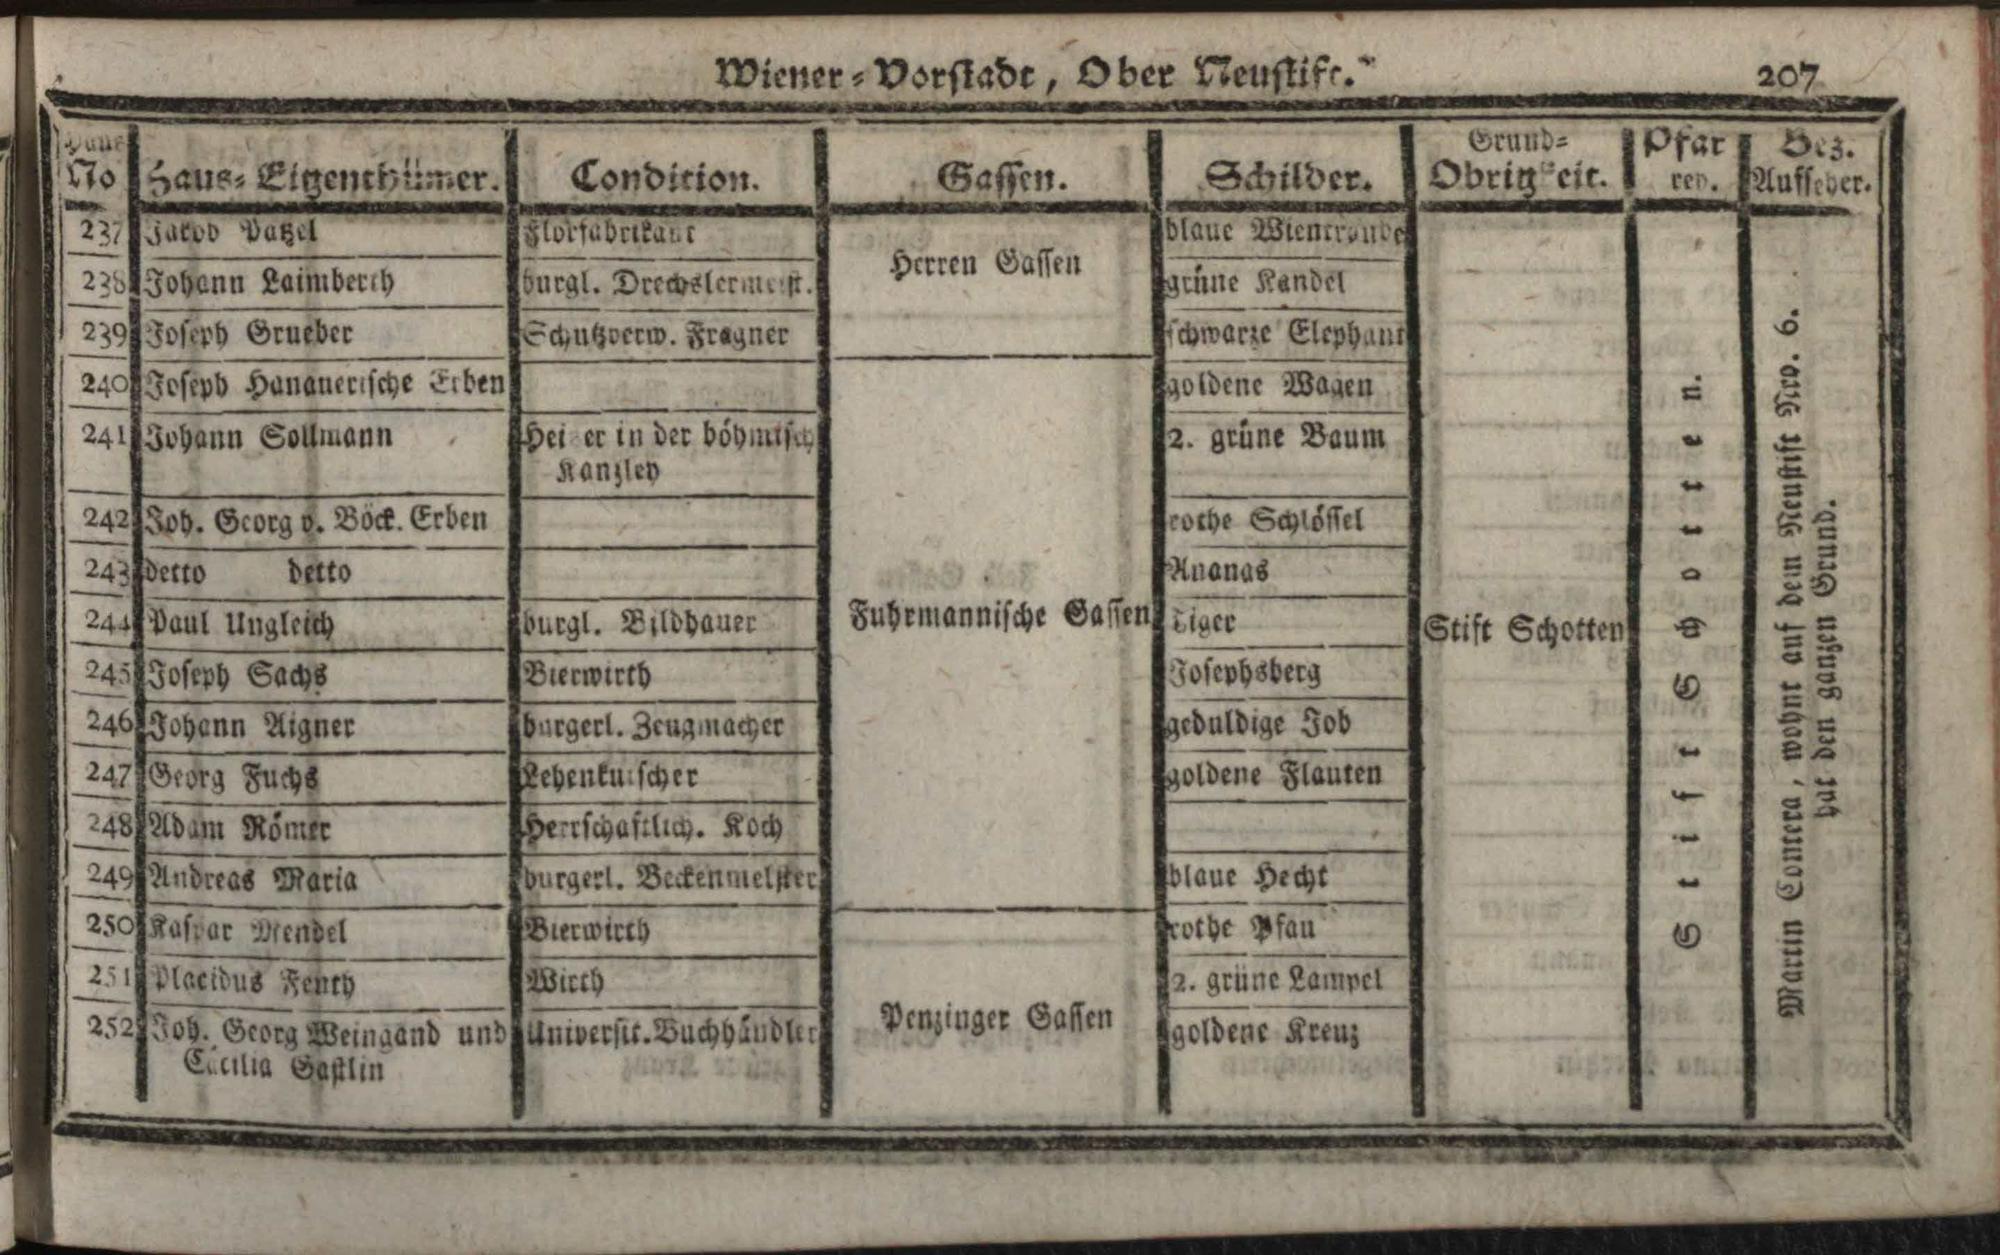 Wiener-Vorstadt, Ober Neustift. 207
Haus No Haus-Eigenthümer. Condition. Gassen. Schilder. Grund-Obrigkeit. Pfarren. Bez. Aufseher.
237 Jacob Patzel Florfabrikant blaue Wientraube
Herren Gassen
238 Johann Laimberth burgl. Drechslermeist. grüne Kandel
239 Joseph Grueber Schutzverw. Fragner schwarze Elephant
240 Joseph Hanauerische Erben goldene Wagen
241 Johann Sollmann Heitzer in der böhmisch 2. grüne Baum
Kanzley
242 Joh. Georg v. Böck. Erben rothe Schlössel
243 detto detto Ananas
244 Paul Ungleich burgl. Bildhauer Fuhrmannische Gassen Tiger Stift Schotten
245 Joseph Sachs Bierwirth Josephsberg
246 Johann Aigner burgerl. Zeugmacher geduldige Job
247 Georg Fuchs Lehenkutscher goldene Flauten
248 Adam Römer Herrschaftlich. Koch
249 Andreas Maria burgerl. Beckenmeister blaue Hecht
250 Kaspar Mendel Bierwirth rothe Pfau
251 Placidus Fenth Wirth 2. grüne Lampel
Penzinger Gassen
252 Joh. Georg Weingand und Universit. Buchhändler goldene Kreuz
Cäcilia Gastlin
Stift Schotten.
Martin Contera, wohnt auf dem Neustift Nro. 6.
hat den ganzen Grund.